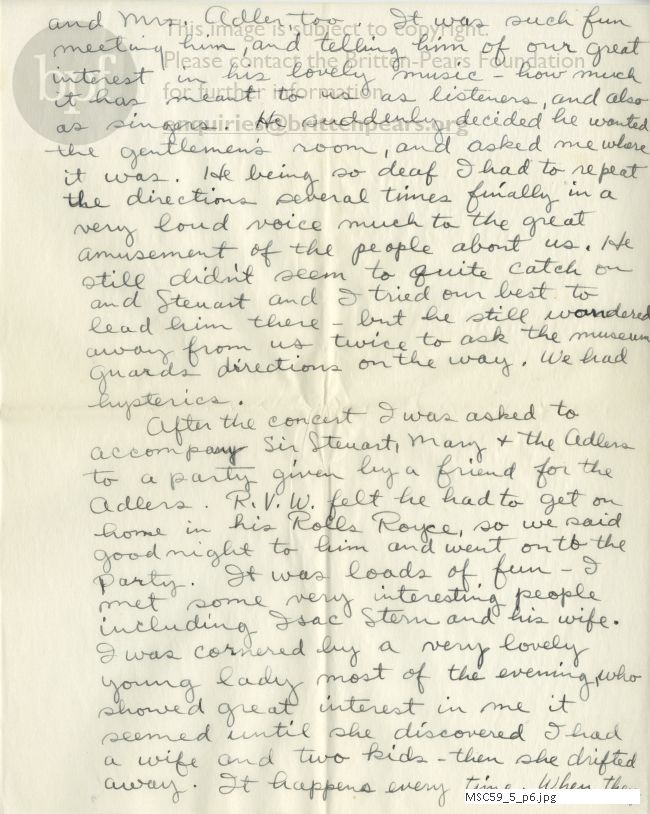 and Mrs. Adler, too. It was such fun
meeting him, and telling him of our great
interest in his lovely music - how much
it has meant to us as listeners, and also
as singers. He suddenly decided he wanted
the gentlemen's room, and asked me where
it was. He being so deaf I had to repeat
the directions several times finally in a
very loud voice much to the great
amusement of the people about us. He
still didn't seem to quite catch on
and Steuart and I tried our best to
lead him there - but he still wandered
away from us twice to ask the museum
guards directions on the way. We had
hysterics.
After the concert I was asked to
accompany Sir Steuart, Mary & the Adlers
to a party given by a friend for the
Adlers. R.V.W. felt he had to get on
home in his Rolls Royce, so we said
good night to him and went on to the
party. It was loads of fun - I
met some very interesting people
including Isac Stern and his wife.
I was cornered by a very lovely
young lady most of the evening, who
showed great interest in me it
seemed until she discovered I had
a wife and two kids - then she drifted
away. It happens every time. When they
bpf
This image is subject to copyright.
Please contact the Britten-Pears Foundation
for further information.
enquiries@brittenpears.org
MSC59_5_p6.jpg